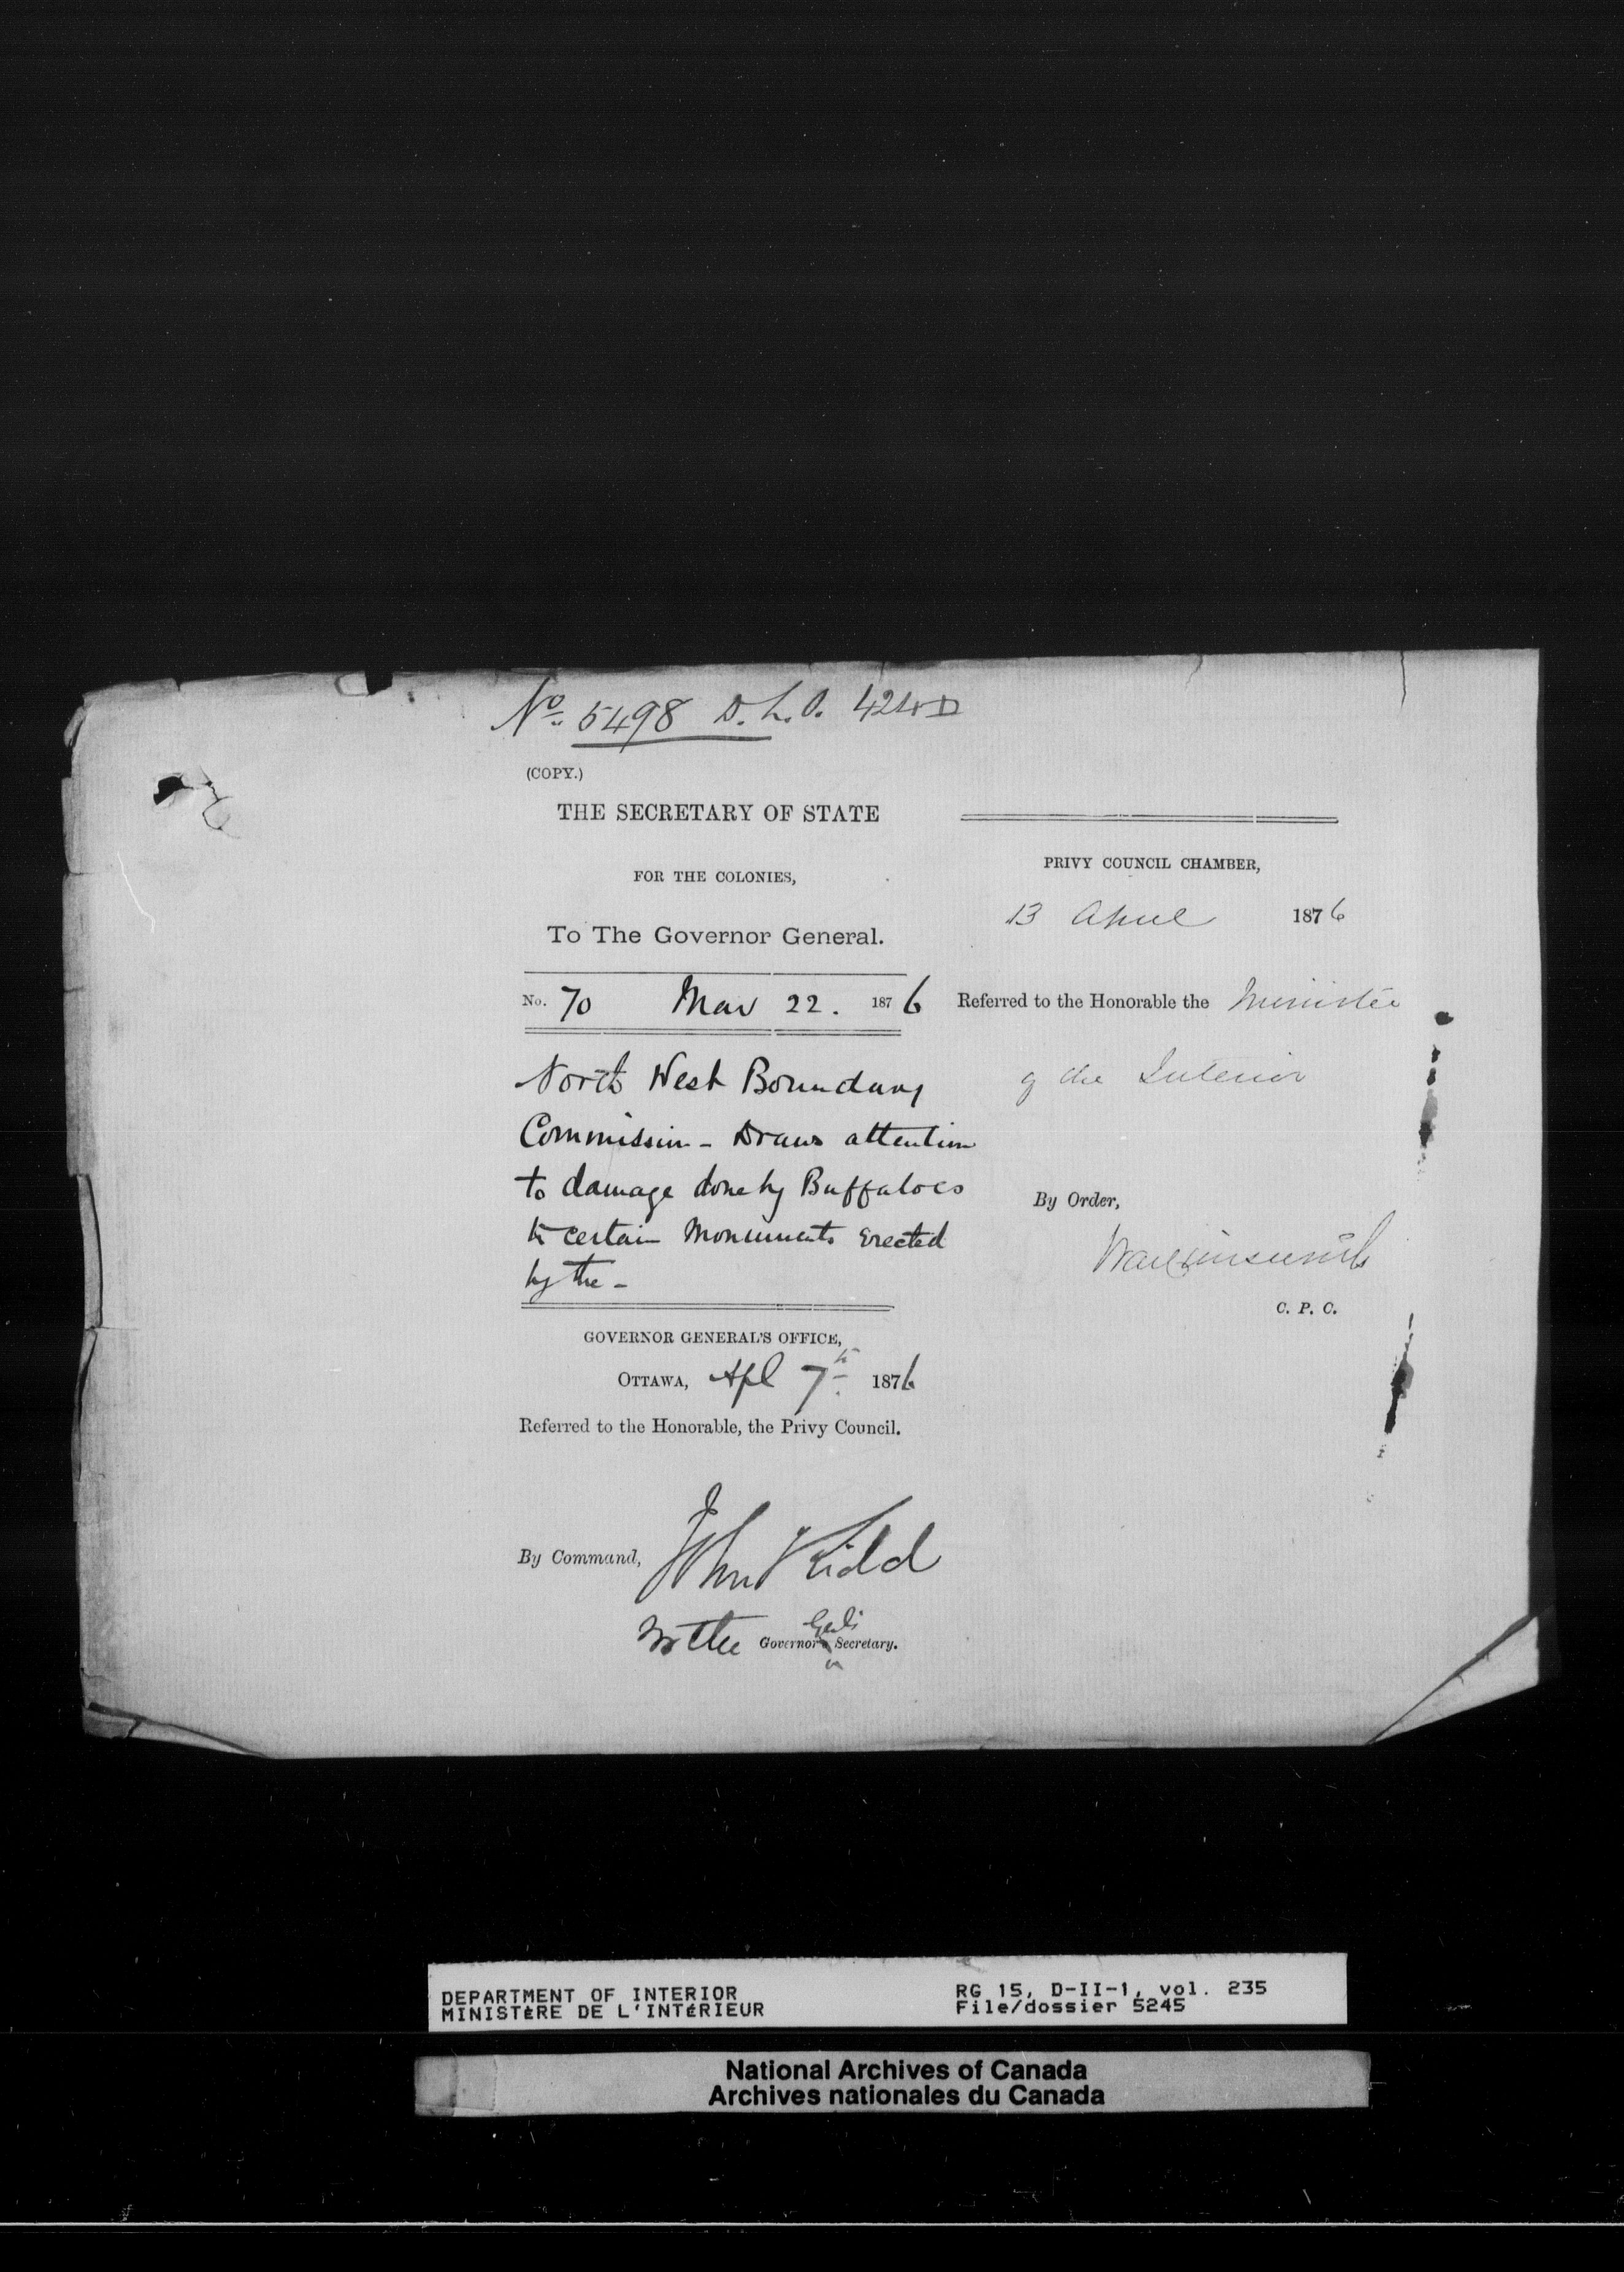 No. 5498 D.L.O. 424D
(COPY.)
THE SECRETARY OF STATE
FOR THE COLONIES,
To The Governor General.
No. 70 Mar 22. 1876
North West Boundary
Commission - Draws attention
to damage done by Buffaloes
to certain Monuments erected
by the -
GOVERNOR GENERAL'S OFFICE,
OTTAWA, Apl 7th 1876
Referred to the Honorable, the Privy Council.
By Command, John Kidd
for the Governor Genl's Secretary.
PRIVY COUNCIL CHAMBER,
13 April 1876
Referred to the Honorable the Minister
of the Interior
By Order,
C. P. C.
DEPARTMENT OF INTERIOR
MINISTÈRE DE L'INTÉRIEUR
RG 15, D-II-1, vol. 235
File/dossier 5245
National Archives of Canada
Archives nationales du Canada